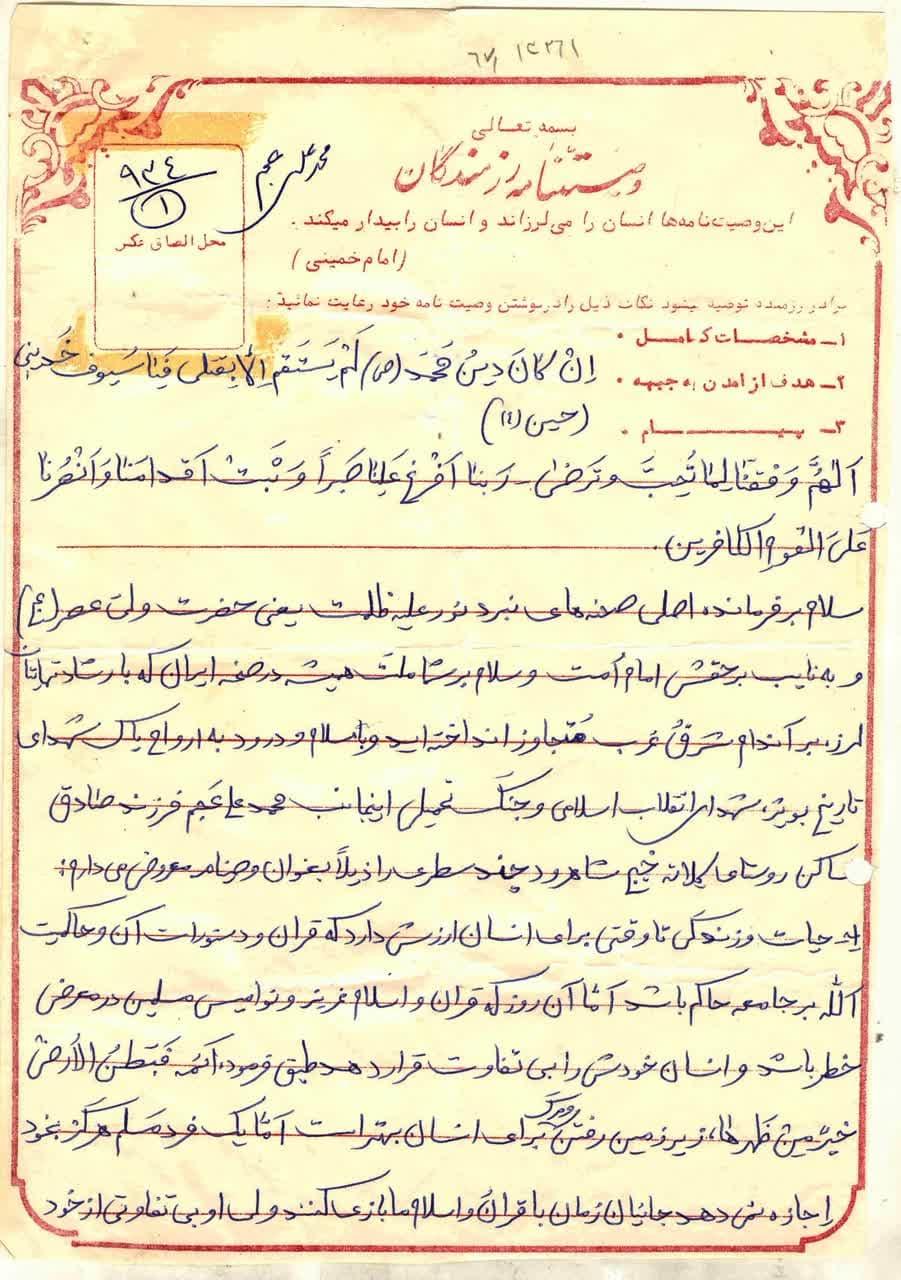 ۱۳۶۱
بسمه تعالی
وصیتنامه رزمندگان
محمد علی عجم
۹۳۴
۱
محل الصاق عکس
این وصیت نامه‌ها انسان را می‌لرزاند و انسان را بیدار میکند .
(امام خمینی)
برادر رزمنده توصیه میشود نکات ذیل را در نوشتن وصیت نامه خود رعایت نمائید :
۱ـ مشخصات کامل .
۲ـ هدف از آمدن به جبهه .
۳ـ پیام .
اِنْ کانَ دینُ مُحَمَد (ص) لَمْ یَستَقم اِلّا بِقتلی فَیا سُیوف خُذینی
(حسین (ع))
اَللّهُمَّ وَفِقنا لِما تُحِبَّ وَ تَرَضیٰ - رَبَنا اَفْرِغ عَلَینا صَبراً وَ ثَبِّت اَقدامَنا وَانْصُرنا
عَلیَ القوم الکافرین .
سلام بر فرمانده اصلی صحنه‌های نبرد نور علیه ظلمت یعنی حضرت ولی عصر (عج)
و به نایب برحقش امام اُمت و سلام بر شما ملت همیشه در صحنه ایران که با رشادتهایتان
لرزه بر اَندام شرق و غرب مُتجاوز انداخته‌اید و با سلام و درود به ارواح پاک شهدای
تاریخ بویژه شهدای انقلاب اسلامی و جنگ تحمیلی اینجانب محمد علی عجم فرزند صادق
ساکن روستای کلاته خیج شاهرود چند سطری را ذیلاً بعنوان وصیتنامه معروض می‌دارم :
۱ـ حیات و زندگی تا وقتی برای انسان ارزش دارد که قران و دستورات آن و حاکمیت
اَللّه بر جامعه حاکم باشد اَمّا آن روز که قران و اسلام عزیز و نوامیس مسلمین در معرض
خطر باشد و انسان خودش را بی تفاوت قرار دهد طبق فرموده ائمه فَبَطنُ الاَرضْ
خیرٌ مِن ظَهرها، زیر زمین رفتن و مرگ برای انسان بهتر است اَمّا یک فرد مسلم هرگز بخود
اِجازه نمی دهد جانیان زمان با قرانُ و اسلام ما بازی کنند ولی او بی تفاوتی از خود